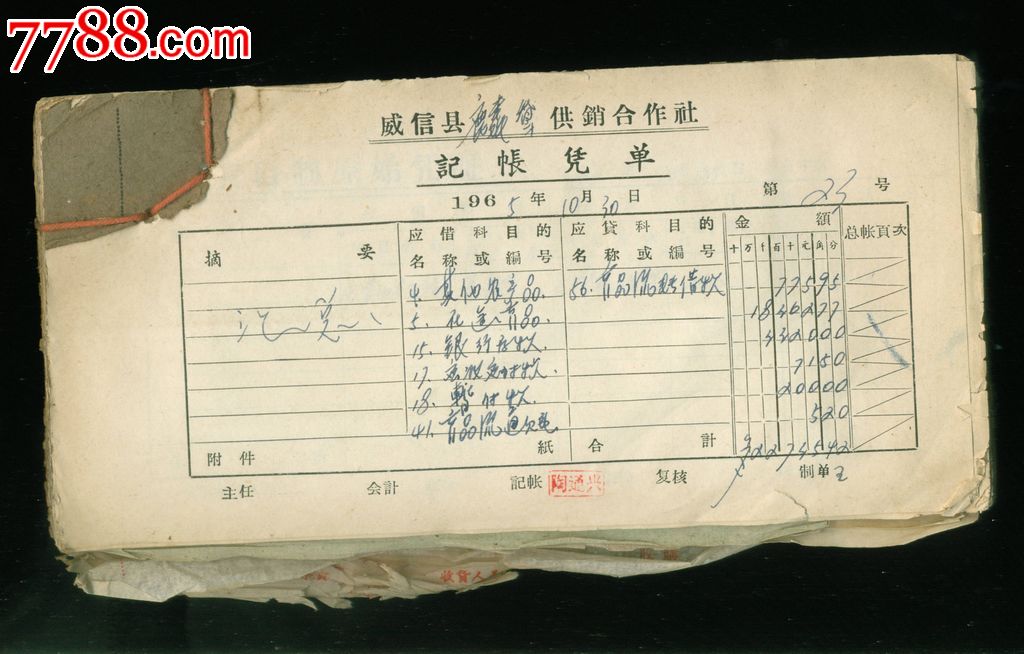 7788.com
威信县 供銷合作社
記帳凭单
1965年10月30日 第23号
摘要 应借科目的名称或編号 应貸科目的名称或編号 金額 总帐頁次
十万千百十元角分
4. 其他农产品. 56. 商品流通借款 77595
汇总 5. 在途商品. 1846277
15. 銀行存款 442000
17. 7150
18. 暫付款 20000
41. 商品流通欠 520
附件 紙 合計 ¥2274542
主任 会計 記帐 陶通兴 复核 制单 王
收貨人